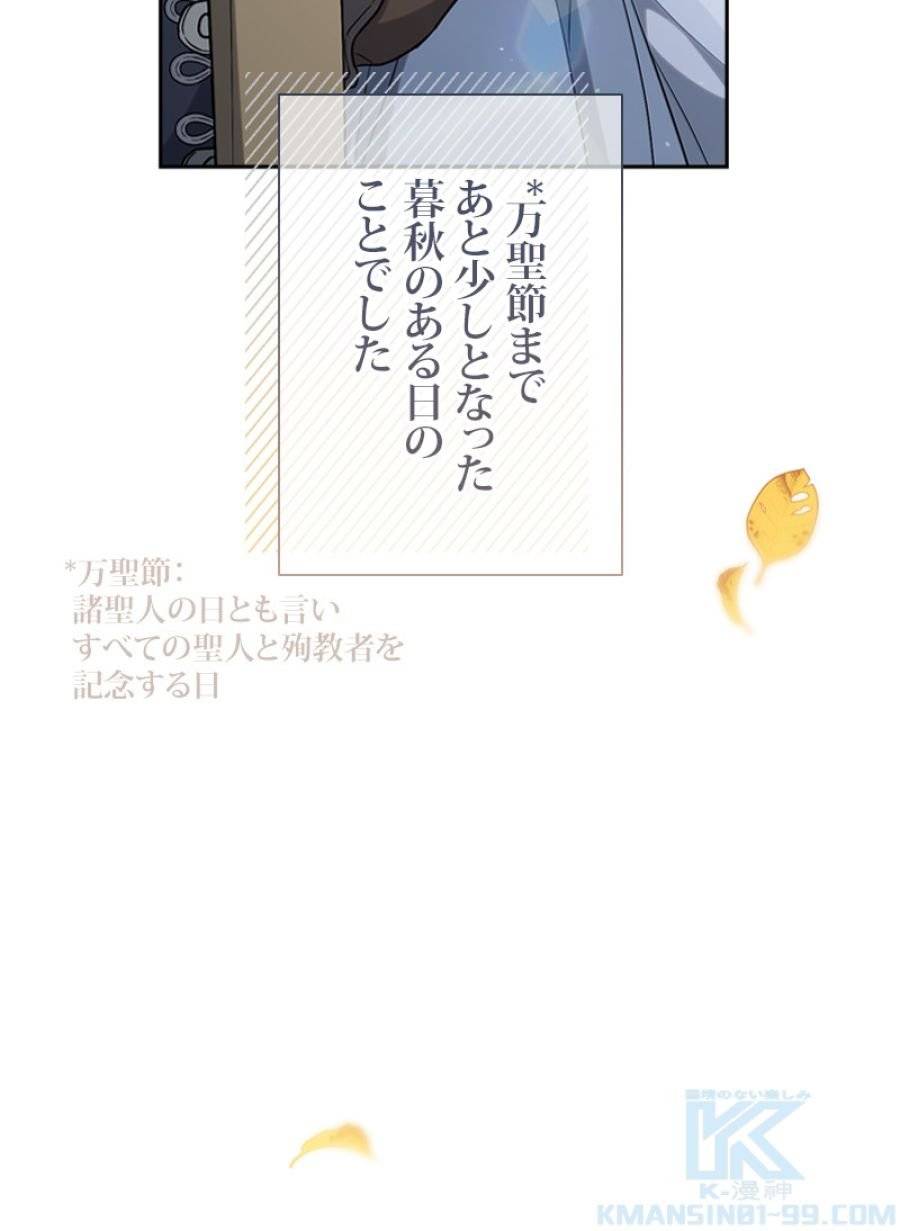 *万聖節まで
あと少しとなった
暮秋のある日の
ことでした
*万聖節：
諸聖人の日とも言い
すべての聖人と殉教者を
記念する日
環境のない楽しみ
K-漫神
KMANSIN01-99.COM